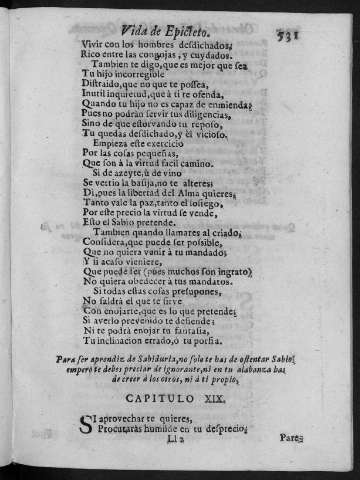 Vida de Epicteto. 531
Vivir con los hombres desdichados;
Rico entre las congojas, y cuydados.
Tambien te digo, que es mejor que sea
Tu hijo incorregible
Distraido, que no que te possea,
Inutil inquietud, que à ti te ofenda,
Quando tu hijo no es capaz de enmienda;
Pues no podràn servir tus diligencias,
Sino de que estorvando tu reposo,
Tu quedas desdichado, y èl vicioso.
Empieza este exercicio
Por las cosas pequeñas,
Que son à la virtud facil camino.
Si de azeyte, ù de vino
Se vertiò la basija, no te alteres;
Di, pues la libertad del Alma quieres;
Tanto vale la paz, tanto el sosiego,
Por este precio la virtud se vende,
Esto el Sabio pretende.
Tambien quando llamares al criado;
Considera, que puede ser possible,
Que no quiera venir à tu mandado;
Y si acaso viniere,
Que puede ser (pues muchos son ingrato)
No quiera obedecer à tus mandatos.
Si todas estas cosas presupones,
No saldrà el que te sirve
Con enojarte, que es lo que pretende;
Si averlo prevenido te defiende;
Ni te podrà enojar tu fantasia,
Tu inclinacion errado, ò tu porfia.
Para ser aprendiz de Sabiduria, no solo te has de ostentar Sabio,
empero te debes preciar de ignorante, ni en tu alabanza has
de creer à los otros, ni à ti propio.
CAPITULO XIX.
SI aprovechar te quieres,
Procuraràs humilde en tu desprecio;
Ll 2 Pare-